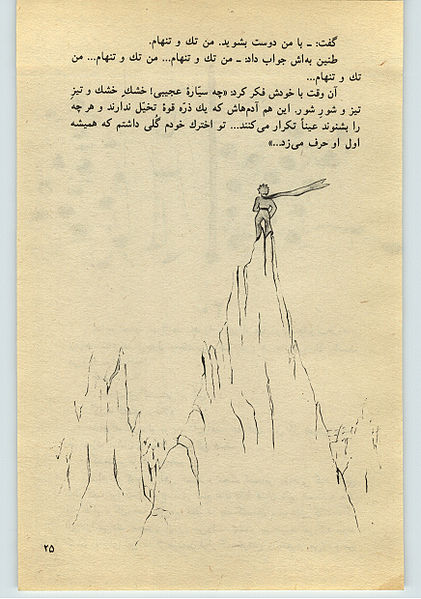 گفت: ـ با من دوست بشوید. من تك و تنهام.
طنین به‌اش جواب داد: ـ من تك و تنهام... من تك و تنهام... من
تك و تنهام...
آن وقت با خودش فکر کرد: «چه سیّارهٔ عجیبی! خشكِ خشك و تیزِ
تیز و شورِ شور. این هم آدم‌هاش که یك ذرّه قوهٔ تخیّل ندارند و هر چه
را بشنوند عیناً تکرار می‌کنند... تو اخترك خودم گُلی داشتم که همیشه
اول او حرف می‌زد...»
۲۵